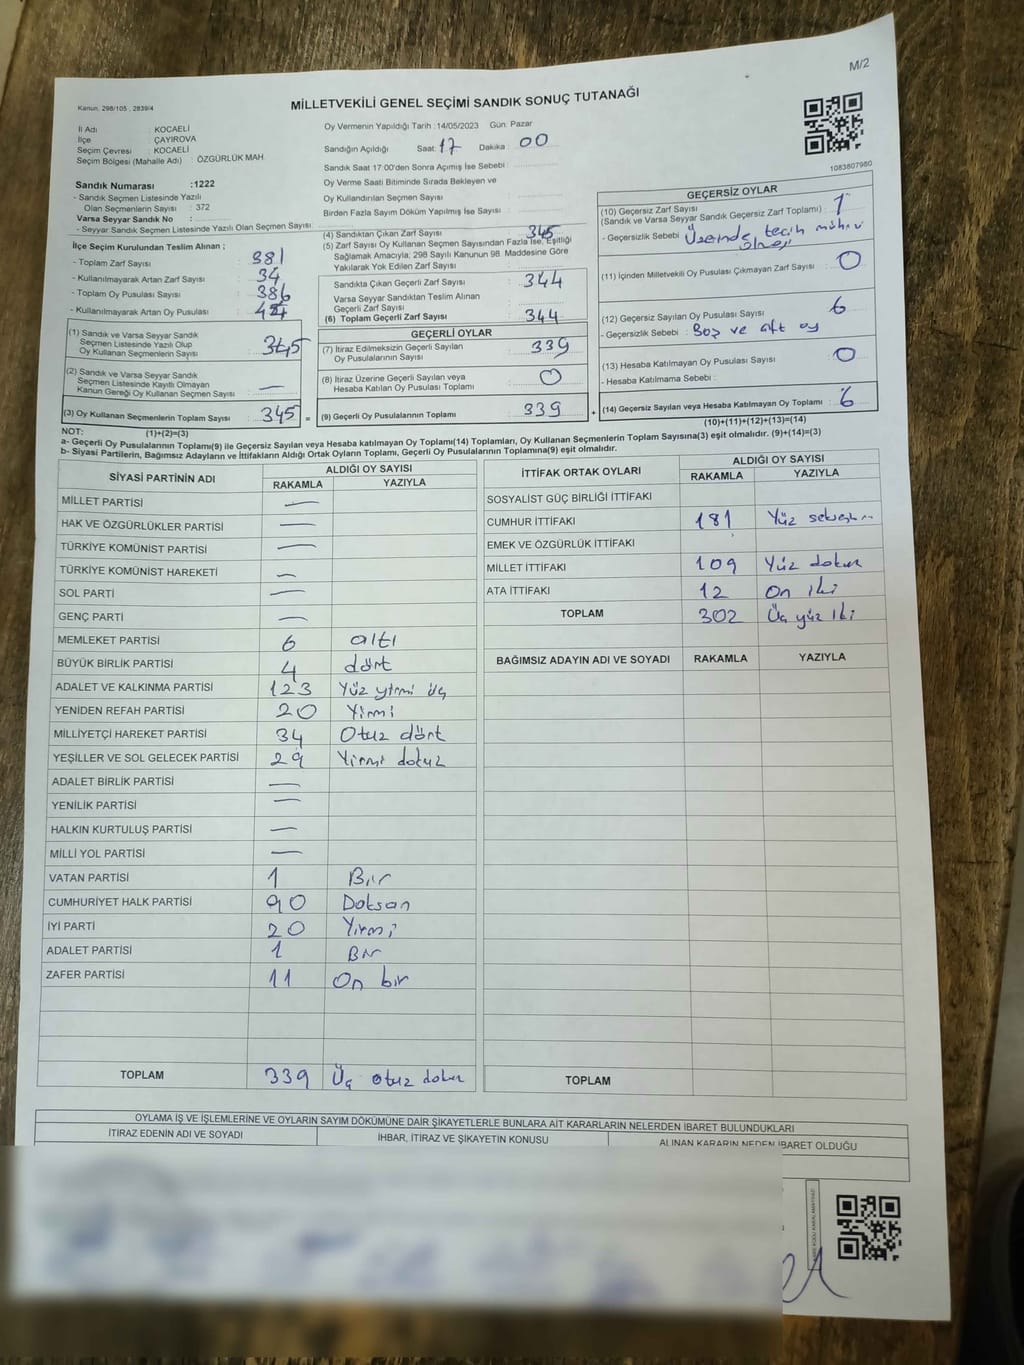 M/2
Kanun, 298/105 , 2839/4
MİLLETVEKİLİ GENEL SEÇİMİ SANDIK SONUÇ TUTANAĞI
İl Adı : KOCAELİ
İlçe : ÇAYIROVA
Seçim Çevresi : KOCAELİ
Seçim Bölgesi (Mahalle Adı) : ÖZGÜRLÜK MAH.
Sandık Numarası :1222
- Sandık Seçmen Listesinde Yazılı
Olan Seçmenlerin Sayısı : 372
Varsa Seyyar Sandık No :
- Seyyar Sandık Seçmen Listesinde Yazılı Olan Seçmen Sayısı :
Oy Vermenin Yapıldığı Tarih :14/05/2023 Gün: Pazar
Sandığın Açıldığı Saat: 17 Dakika 00
Sandık Saat 17:00'den Sonra Açılmış İse Sebebi :
Oy Verme Saati Bitiminde Sırada Bekleyen ve
Oy Kullandırılan Seçmen Sayısı :
Birden Fazla Sayım Döküm Yapılmış İse Sayısı :
1083807980
İlçe Seçim Kurulundan Teslim Alınan ;
- Toplam Zarf Sayısı : 381
- Kullanılmayarak Artan Zarf Sayısı : 34
- Toplam Oy Pusulası Sayısı : 386
- Kullanılmayarak Artan Oy Pusulası :
(1) Sandık ve Varsa Seyyar Sandık
Seçmen Listesinde Yazılı Olup
Oy Kullanan Seçmenlerin Sayısı : 345
(2) Sandık ve Varsa Seyyar Sandık
Seçmen Listesinde Kayıtlı Olmayan
Kanun Gereği Oy Kullanan Seçmen Sayısı : —
(3) Oy Kullanan Seçmenlerin Toplam Sayısı : 345 =
(4) Sandıktan Çıkan Zarf Sayısı : 345
(5) Zarf Sayısı Oy Kullanan Seçmen Sayısından Fazla İse, Eşitliği
Sağlamak Amacıyla; 298 Sayılı Kanunun 98. Maddesine Göre
Yakılarak Yok Edilen Zarf Sayısı :
Sandıkta Çıkan Geçerli Zarf Sayısı : 344
Varsa Seyyar Sandıktan Teslim Alınan
Geçerli Zarf Sayısı :
(6) Toplam Geçerli Zarf Sayısı : 344
GEÇERLİ OYLAR
(7) İtiraz Edilmeksizin Geçerli Sayılan
Oy Pusulalarının Sayısı : 339
(8) İtiraz Üzerine Geçerli Sayılan veya
Hesaba Katılan Oy Pusulası Toplamı : 0
(9) Geçerli Oy Pusulalarının Toplamı : 339 +
GEÇERSİZ OYLAR
(10) Geçersiz Zarf Sayısı : 1
(Sandık ve Varsa Seyyar Sandık Geçersiz Zarf Toplamı)
- Geçersizlik Sebebi : Üzerinde tercih mührü
olması
(11) İçinden Milletvekili Oy Pusulası Çıkmayan Zarf Sayısı : 0
(12) Geçersiz Sayılan Oy Pusulası Sayısı : 6
- Geçersizlik Sebebi : Boş ve çift oy
(13) Hesaba Katılmayan Oy Pusulası Sayısı : 0
- Hesaba Katılmama Sebebi :
(14) Geçersiz Sayılan veya Hesaba Katılmayan Oy Toplamı : 6
(10)+(11)+(12)+(13)=(14)
NOT: (1)+(2)=(3)
a- Geçerli Oy Pusulalarının Toplamı(9) ile Geçersiz Sayılan veya Hesaba katılmayan Oy Toplamı(14) Toplamları, Oy Kullanan Seçmenlerin Toplam Sayısına(3) eşit olmalıdır. (9)+(14)=(3)
b- Siyasi Partilerin, Bağımsız Adayların ve İttifakların Aldığı Ortak Oyların Toplamı, Geçerli Oy Pusulalarının Toplamına(9) eşit olmalıdır.
SİYASİ PARTİNİN ADI ALDIĞI OY SAYISI
RAKAMLA YAZIYLA
MİLLET PARTİSİ —
HAK VE ÖZGÜRLÜKLER PARTİSİ —
TÜRKİYE KOMÜNİST PARTİSİ —
TÜRKİYE KOMÜNİST HAREKETİ —
SOL PARTİ —
GENÇ PARTİ —
MEMLEKET PARTİSİ 6 altı
BÜYÜK BİRLİK PARTİSİ 4 dört
ADALET VE KALKINMA PARTİSİ 123 Yüz yirmi üç
YENİDEN REFAH PARTİSİ 20 Yirmi
MİLLİYETÇİ HAREKET PARTİSİ 34 Otuz dört
YEŞİLLER VE SOL GELECEK PARTİSİ 29 Yirmi dokuz
ADALET BİRLİK PARTİSİ —
YENİLİK PARTİSİ —
HALKIN KURTULUŞ PARTİSİ —
MİLLİ YOL PARTİSİ —
VATAN PARTİSİ 1 Bir
CUMHURİYET HALK PARTİSİ 90 Doksan
İYİ PARTİ 20 Yirmi
ADALET PARTİSİ 1 Bir
ZAFER PARTİSİ 11 On bir
TOPLAM 339 Üç otuz dokuz
İTTİFAK ORTAK OYLARI ALDIĞI OY SAYISI
RAKAMLA YAZIYLA
SOSYALİST GÜÇ BİRLİĞİ İTTİFAKI
CUMHUR İTTİFAKI 181 Yüz seksen
EMEK VE ÖZGÜRLÜK İTTİFAKI
MİLLET İTTİFAKI 109 Yüz dokuz
ATA İTTİFAKI 12 On iki
TOPLAM 302 Üç yüz iki
BAĞIMSIZ ADAYIN ADI VE SOYADI RAKAMLA YAZIYLA
TOPLAM
OYLAMA İŞ VE İŞLEMLERİNE VE OYLARIN SAYIM DÖKÜMÜNE DAİR ŞİKAYETLERLE BUNLARA AİT KARARLARIN NELERDEN İBARET BULUNDUKLARI
İTİRAZ EDENİN ADI VE SOYADI İHBAR, İTİRAZ VE ŞİKAYETİN KONUSU ALINAN KARARIN NEDEN İBARET OLDUĞU